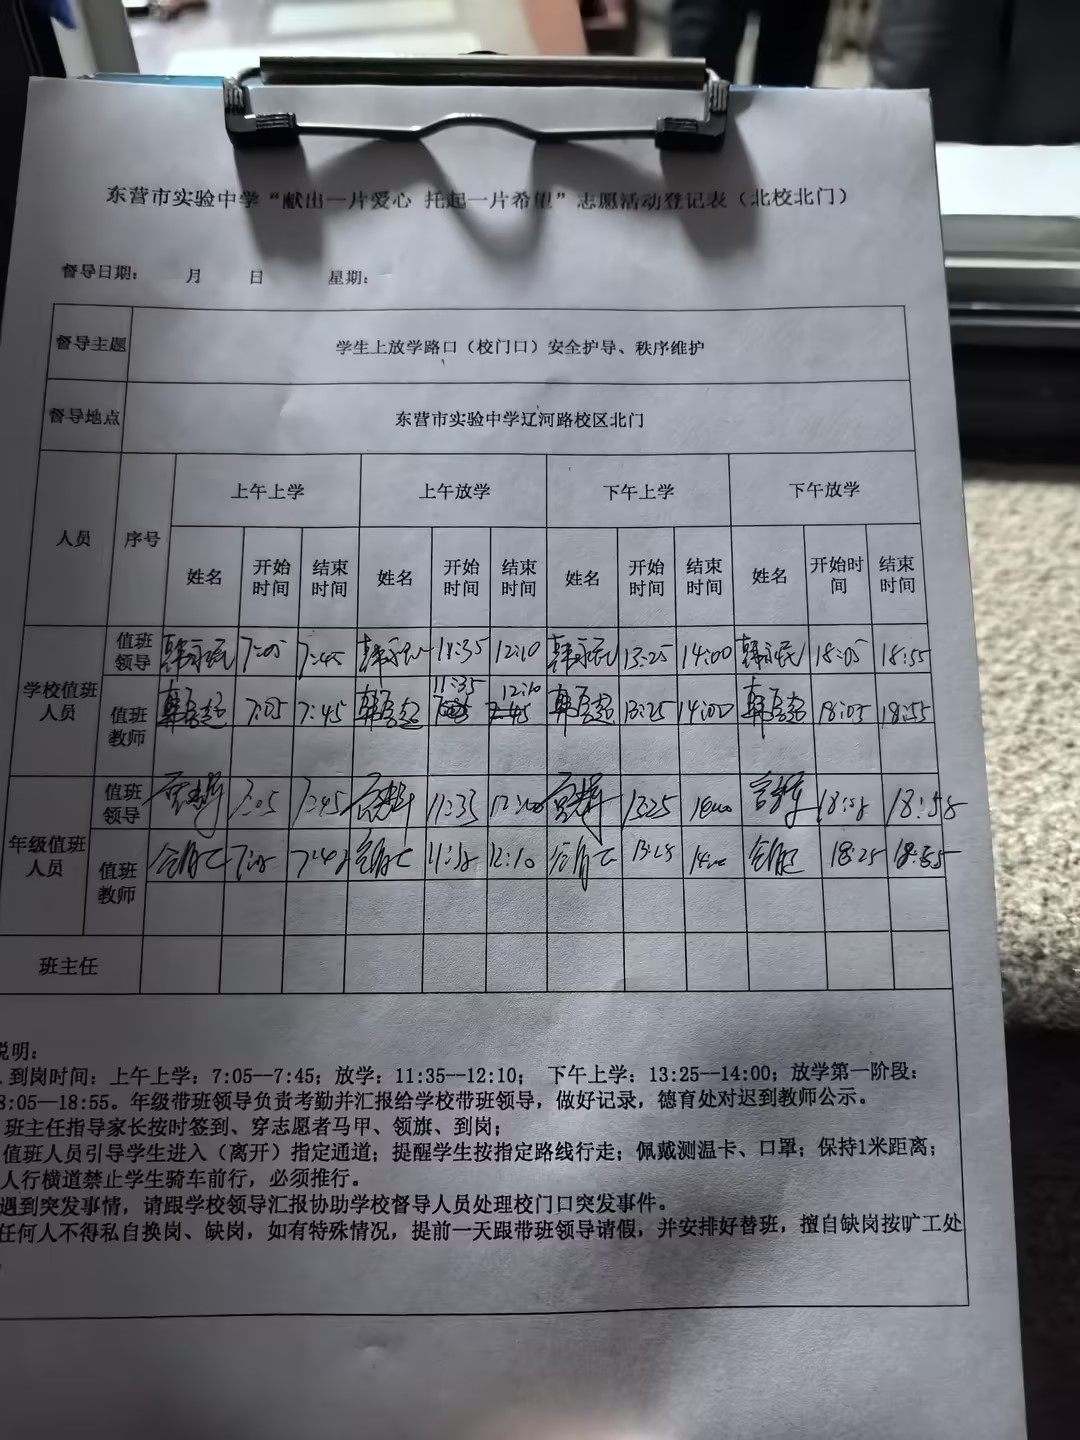 东营市实验中学“献出一片爱心 托起一片希望”志愿活动登记表（北校北门）
督导日期： 月 日 星期：
督导主题 学生上放学路口（校门口）安全护导、秩序维护
督导地点 东营市实验中学辽河路校区北门
人员 序号 上午上学 上午放学 下午上学 下午放学
姓名 开始时间 结束时间 姓名 开始时间 结束时间 姓名 开始时间 结束时间 姓名 开始时间 结束时间
学校值班人员 值班领导 韩永民 7:05 7:45 韩永民 11:35 12:10 韩永民 13:25 14:00 韩永民 18:05 18:55
值班教师 7:05 7:45 11:35 12:10 13:25 14:00 18:05 18:55
年级值班人员 值班领导 7:05 7:45 11:35 13:25
值班教师 12:10 18:25
班主任
说明：
到岗时间：上午上学：7:05--7:45；放学：11:35--12:10； 下午上学：13:25--14:00；放学第一阶段：
8:05--18:55。年级带班领导负责考勤并汇报给学校带班领导，做好记录，德育处对迟到教师公示。
班主任指导家长按时签到、穿志愿者马甲、领旗、到岗；
值班人员引导学生进入（离开）指定通道；提醒学生按指定路线行走；佩戴测温卡、口罩；保持1米距离；
人行横道禁止学生骑车前行，必须推行。
遇到突发事情，请跟学校领导汇报协助学校督导人员处理校门口突发事件。
任何人不得私自换岗、缺岗，如有特殊情况，提前一天跟带班领导请假，并安排好替班，擅自缺岗按旷工处